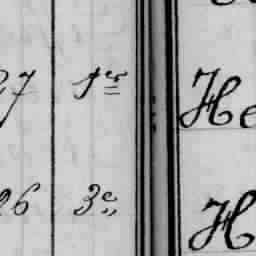 27 1er He
26 3e H